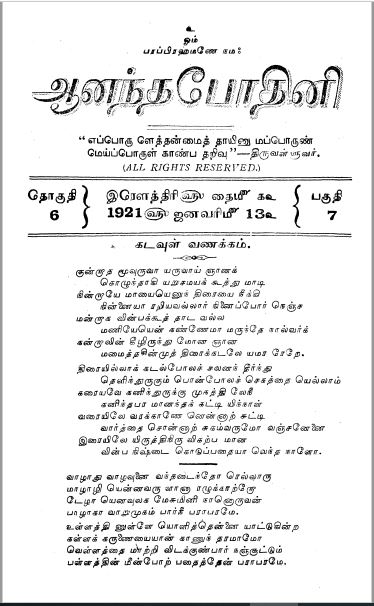 உ
ஓம்
பரப்பிரஹ்மணே நம:
ஆனந்தபோதினி
"எப்பொரு ளெத்தன்மைத் தாயினு மப்பொருண்
மெய்ப்பொருள் காண்ப தறிவு"—திருவள்ளுவர்.
(ALL RIGHTS RESERVED.)
தொகுதி 6
இரௌத்திரி௵ தைமீ கஉ
1921௵ ஜனவரிமீ 13உ
பகுதி 7
கடவுள் வணக்கம்.
குன்றாத மூவுருவா யருவாய் ஞானக்
கொழுந்தாகி யறுசமயக் கூத்து மாடி
நின்றாயே மாயையெனுந் திரையை நீக்கி
நின்னையா ரறியவல்லார் நினைப்போர் நெஞ்ச
மன்றாக வின்பக்கூத் தாட வல்ல
மணியேயென் கண்ணேமா மருந்தே நால்வர்க்
கன்றாலின் கீழிருந்து மோன ஞான
மமைத்தசின்முத் திரைக்கடலே யமர ரேறே.
திரையில்லாக் கடல்போலச் சலனந் தீர்ந்து
தெளிந்துருகும் பொன்போலச் செகத்தை யெல்லாம்
கரையவே கனிந்துருக்கு முகத்தி லேநீ
கனிந்தபர மானந்தக் கட்டி யிந்நாள்
வரையிலே வரக்காணே னென்னாற் கட்டி
வார்த்தை சொன்னாற் சுகம்வருமோ வஞ்சனேனை
இரையிலே யிருத்திநிரு விகற்ப மான
வின்ப நிஷ்டை கொடுப்பதையா வெந்த நாளோ.
வாழாது வாழவுனை வந்தடைந்தோ ரெல்லாரு
மாழாழி யென்னவரு ளானா ரழுக்காற்றோ
டேழா யெனவுலக மேசுமினி நானொருவன்
பாழாகா வாறுமுகம் பார்நீ பராபரமே.
உள்ளத்தி னுள்ளே யொளித்தென்னை யாட்டுகின்ற
கள்ளக் கருணையையான் காணுந் தரமாமோ
வெள்ளத்தை மாற்றி விடக்குண்பார் நஞ்சூட்டும்
பள்ளத்தின் மீன்போற் பதைத்தேன் பராபரமே.